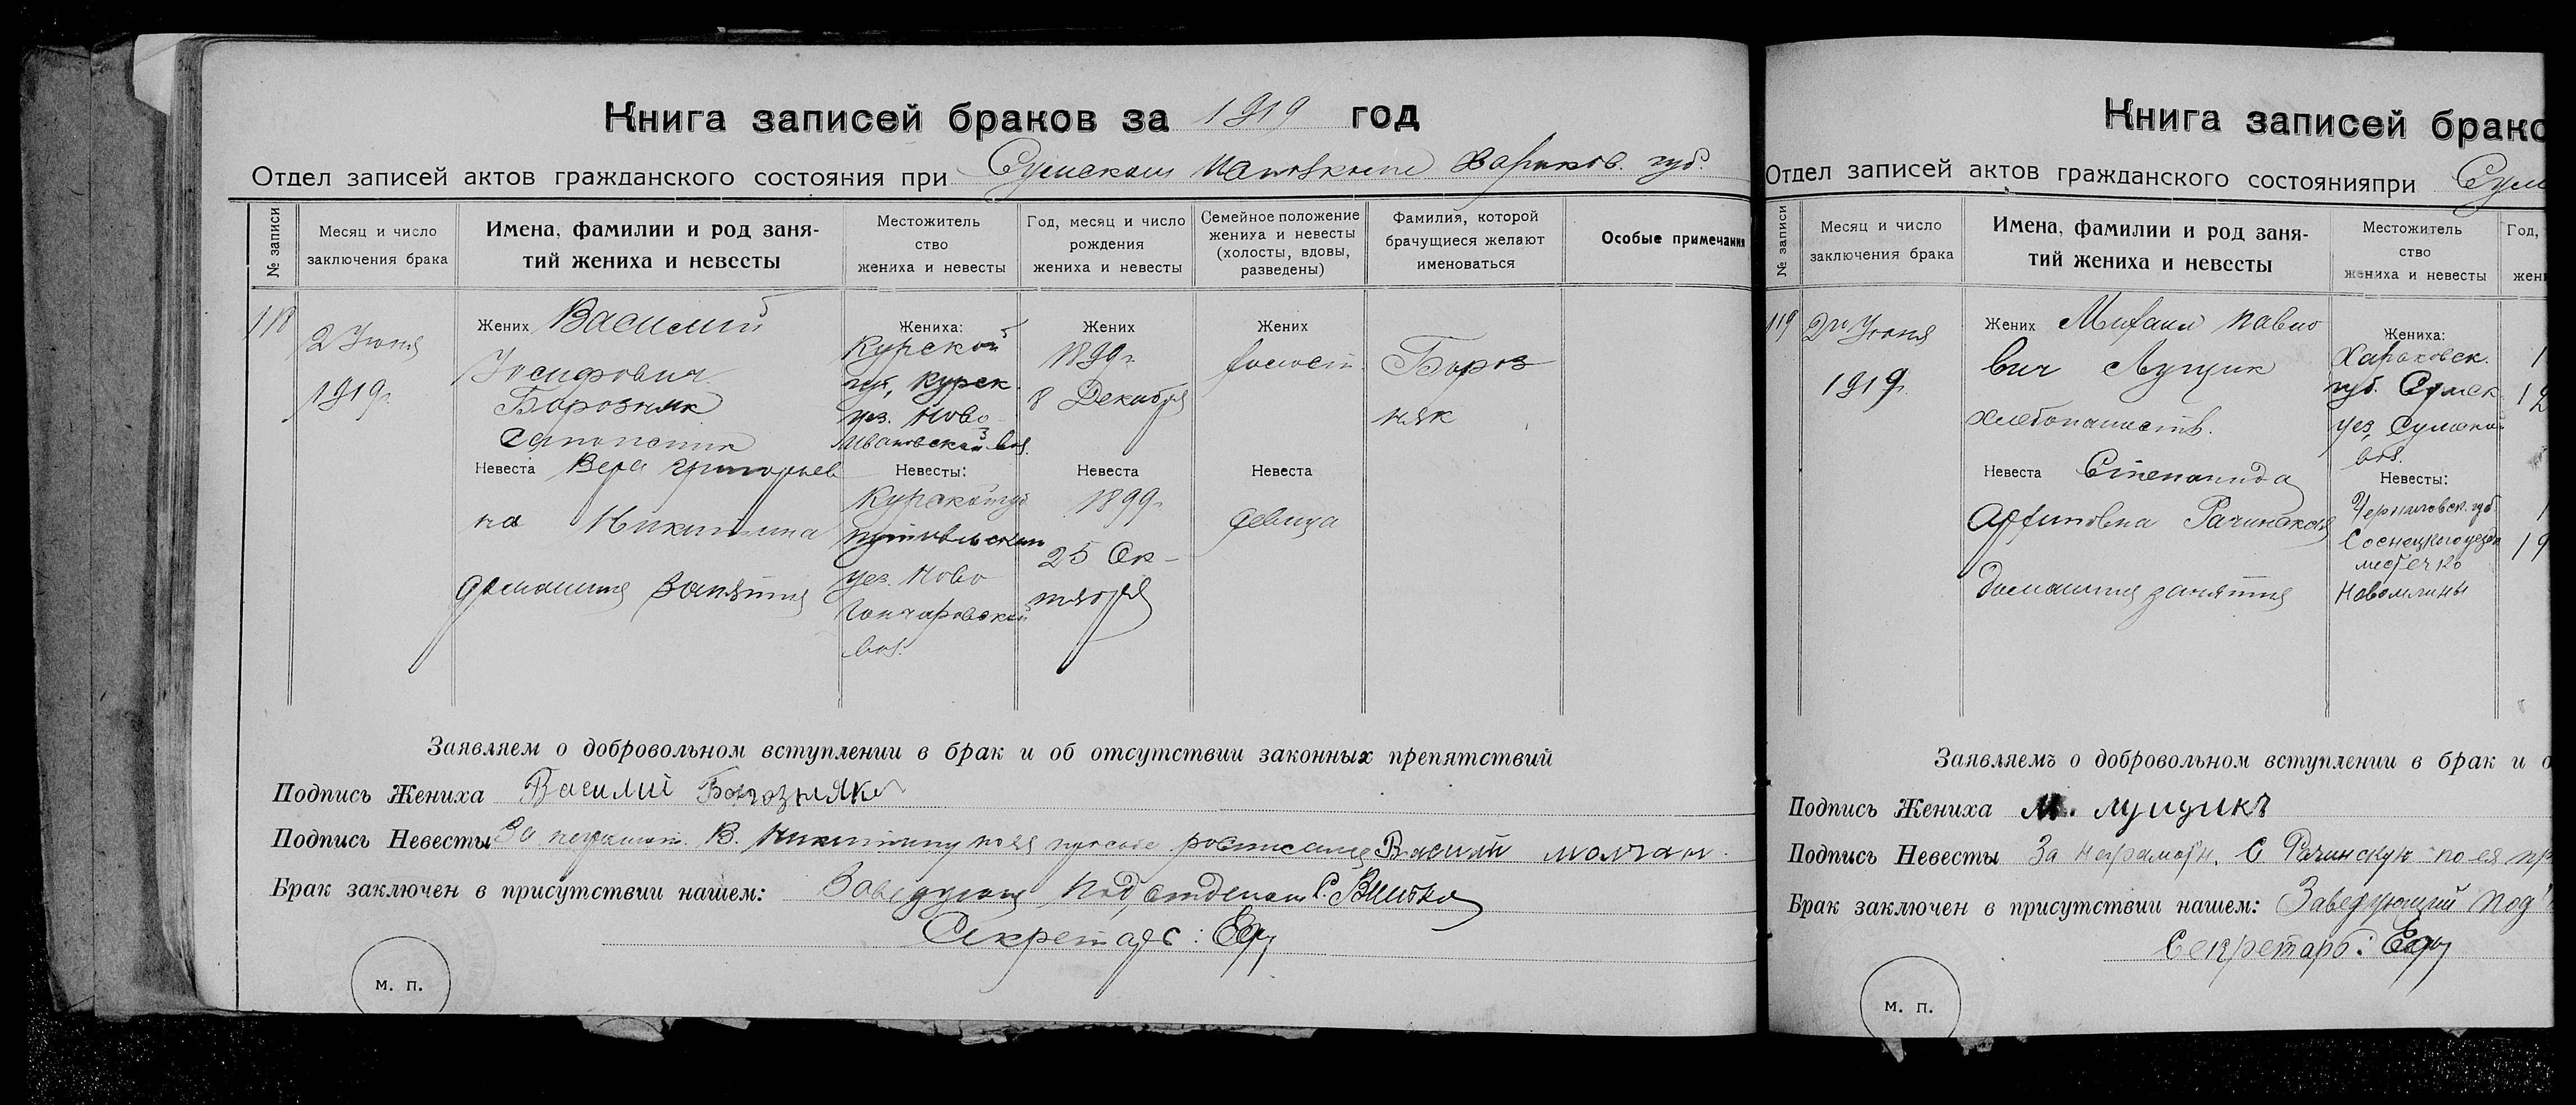 Книга записей браков за 1919 год
Отдел записей актов гражданского состояния при Сумском Исполкоме Харьков. губ.
№ записи
Месяц и число заключения брака
Имена, фамилии и род заня-
тий жениха и невесты
Местожитель
ство
жениха и невесты
Год, месяц и число
рождения
жениха и невесты
Семейное положение
жениха и невесты
(холосты, вдовы,
разведены)
Фамилия, которой
брачущиеся желают
именоваться
Особые примечания
118
2 Июня
1919 г.
Жених Василий
Иосифович
Борозняк
Сапожник
Невеста Вера Григорьев
на Никитина
домашния занятия
Жениха:
Курской
губ, Курск.
уез. Ново
Ивановской вол.
Невесты:
Курской губ
Путивльского
уез. Ново
Гончаровской
вол.
Жених
1899 г.
8 Декабря
Невеста
1899 г.
25 Ок-
тября
Жених
холост.
Невеста
девица
Бороз
няк
Заявляем о добровольном вступлении в брак и об отсутствии законных препятствий
Подпись Жениха Василий Борозняк
Подпись Невесты За неграмот. В. Никитину по ея просьбе росписался Василий Молчан.
Брак заключен в присутствии нашем: Заведующий Под'отделом С.
Секретарь:
м. п.
Книга записей брако
Отдел записей актов гражданского состояния при Сум
№ записи
Месяц и число
заключения брака
Имена, фамилии и род заня-
тий жениха и невесты
Местожитель
ство
жениха и невесты
Год,
жени
119
2го Июня
1919 г.
Жених Михаил Павло
вич Лущик
хлебопашеств.
Невеста Степанида
Архиповна Рачинская
Домашния занятия
Жениха:
Харьковск.
губ. Сумск.
уез, Сумской
вол.
Невесты:
Черниговск. губ.
Соснецкого уезда
местечко
Новомлины
1
1
1
19
Заявляемъ о добровольном вступлении в брак и о
Подпись Жениха М. Лущикъ
Подпись Невесты За неграмотн. С Рачинскую по ея пр
Брак заключен в присутствии нашем: Заведующий Под'
Секретарь:
м. п.